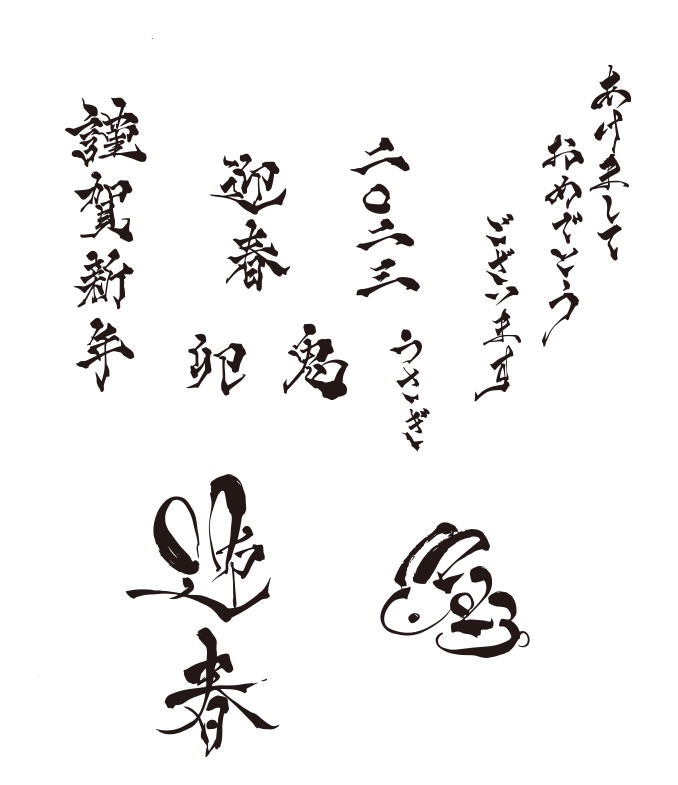 あけまして
おめでとう
ございます
二〇二三
うさぎ
兎
迎春
卯
謹賀新年
迎春